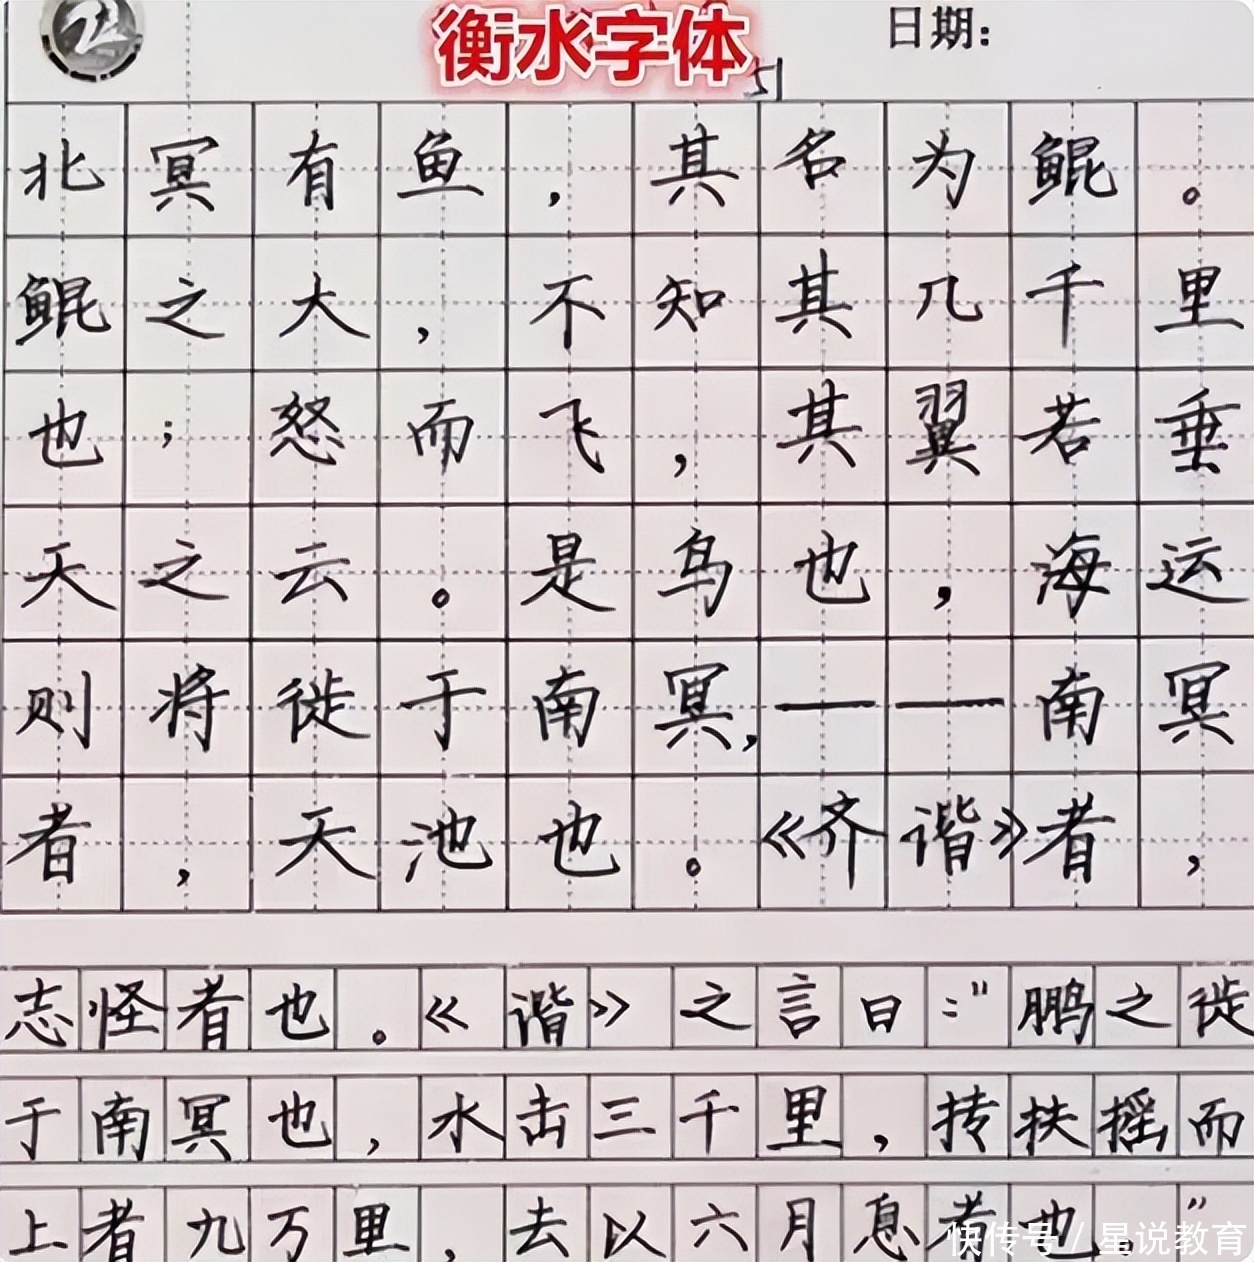 衡水字体
日期:
北冥有鱼,其名为鲲。
鲲之大,不知其几千里
也;怒而飞,其翼若垂
天之云。是鸟也,海运
则将徙于南冥,——南冥
者,天池也。《齐谐》者,
志怪者也。《谐》之言曰:"鹏之徙
于南冥也,水击三千里,抟扶摇而
上者九万里,去以六月息者也。"
快传号/星说教育